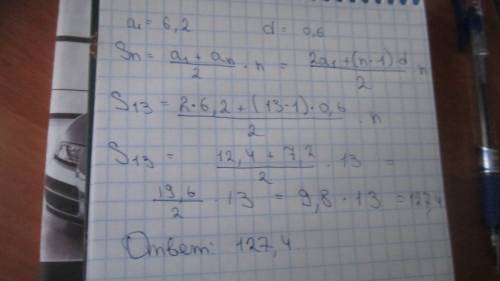 a₁ = 6,2 d = 0,6
Sn = (a₁ + an)/2 · n = (2a₁ + (n-1)d)/2 n
S₁₃ = (2·6,2 + (13-1)·0,6)/2 · n
S₁₃ = (12,4 + 7,2)/2 · 13 =
19,6/2 · 13 = 9,8 · 13 = 127,4
Ответ: 127,4